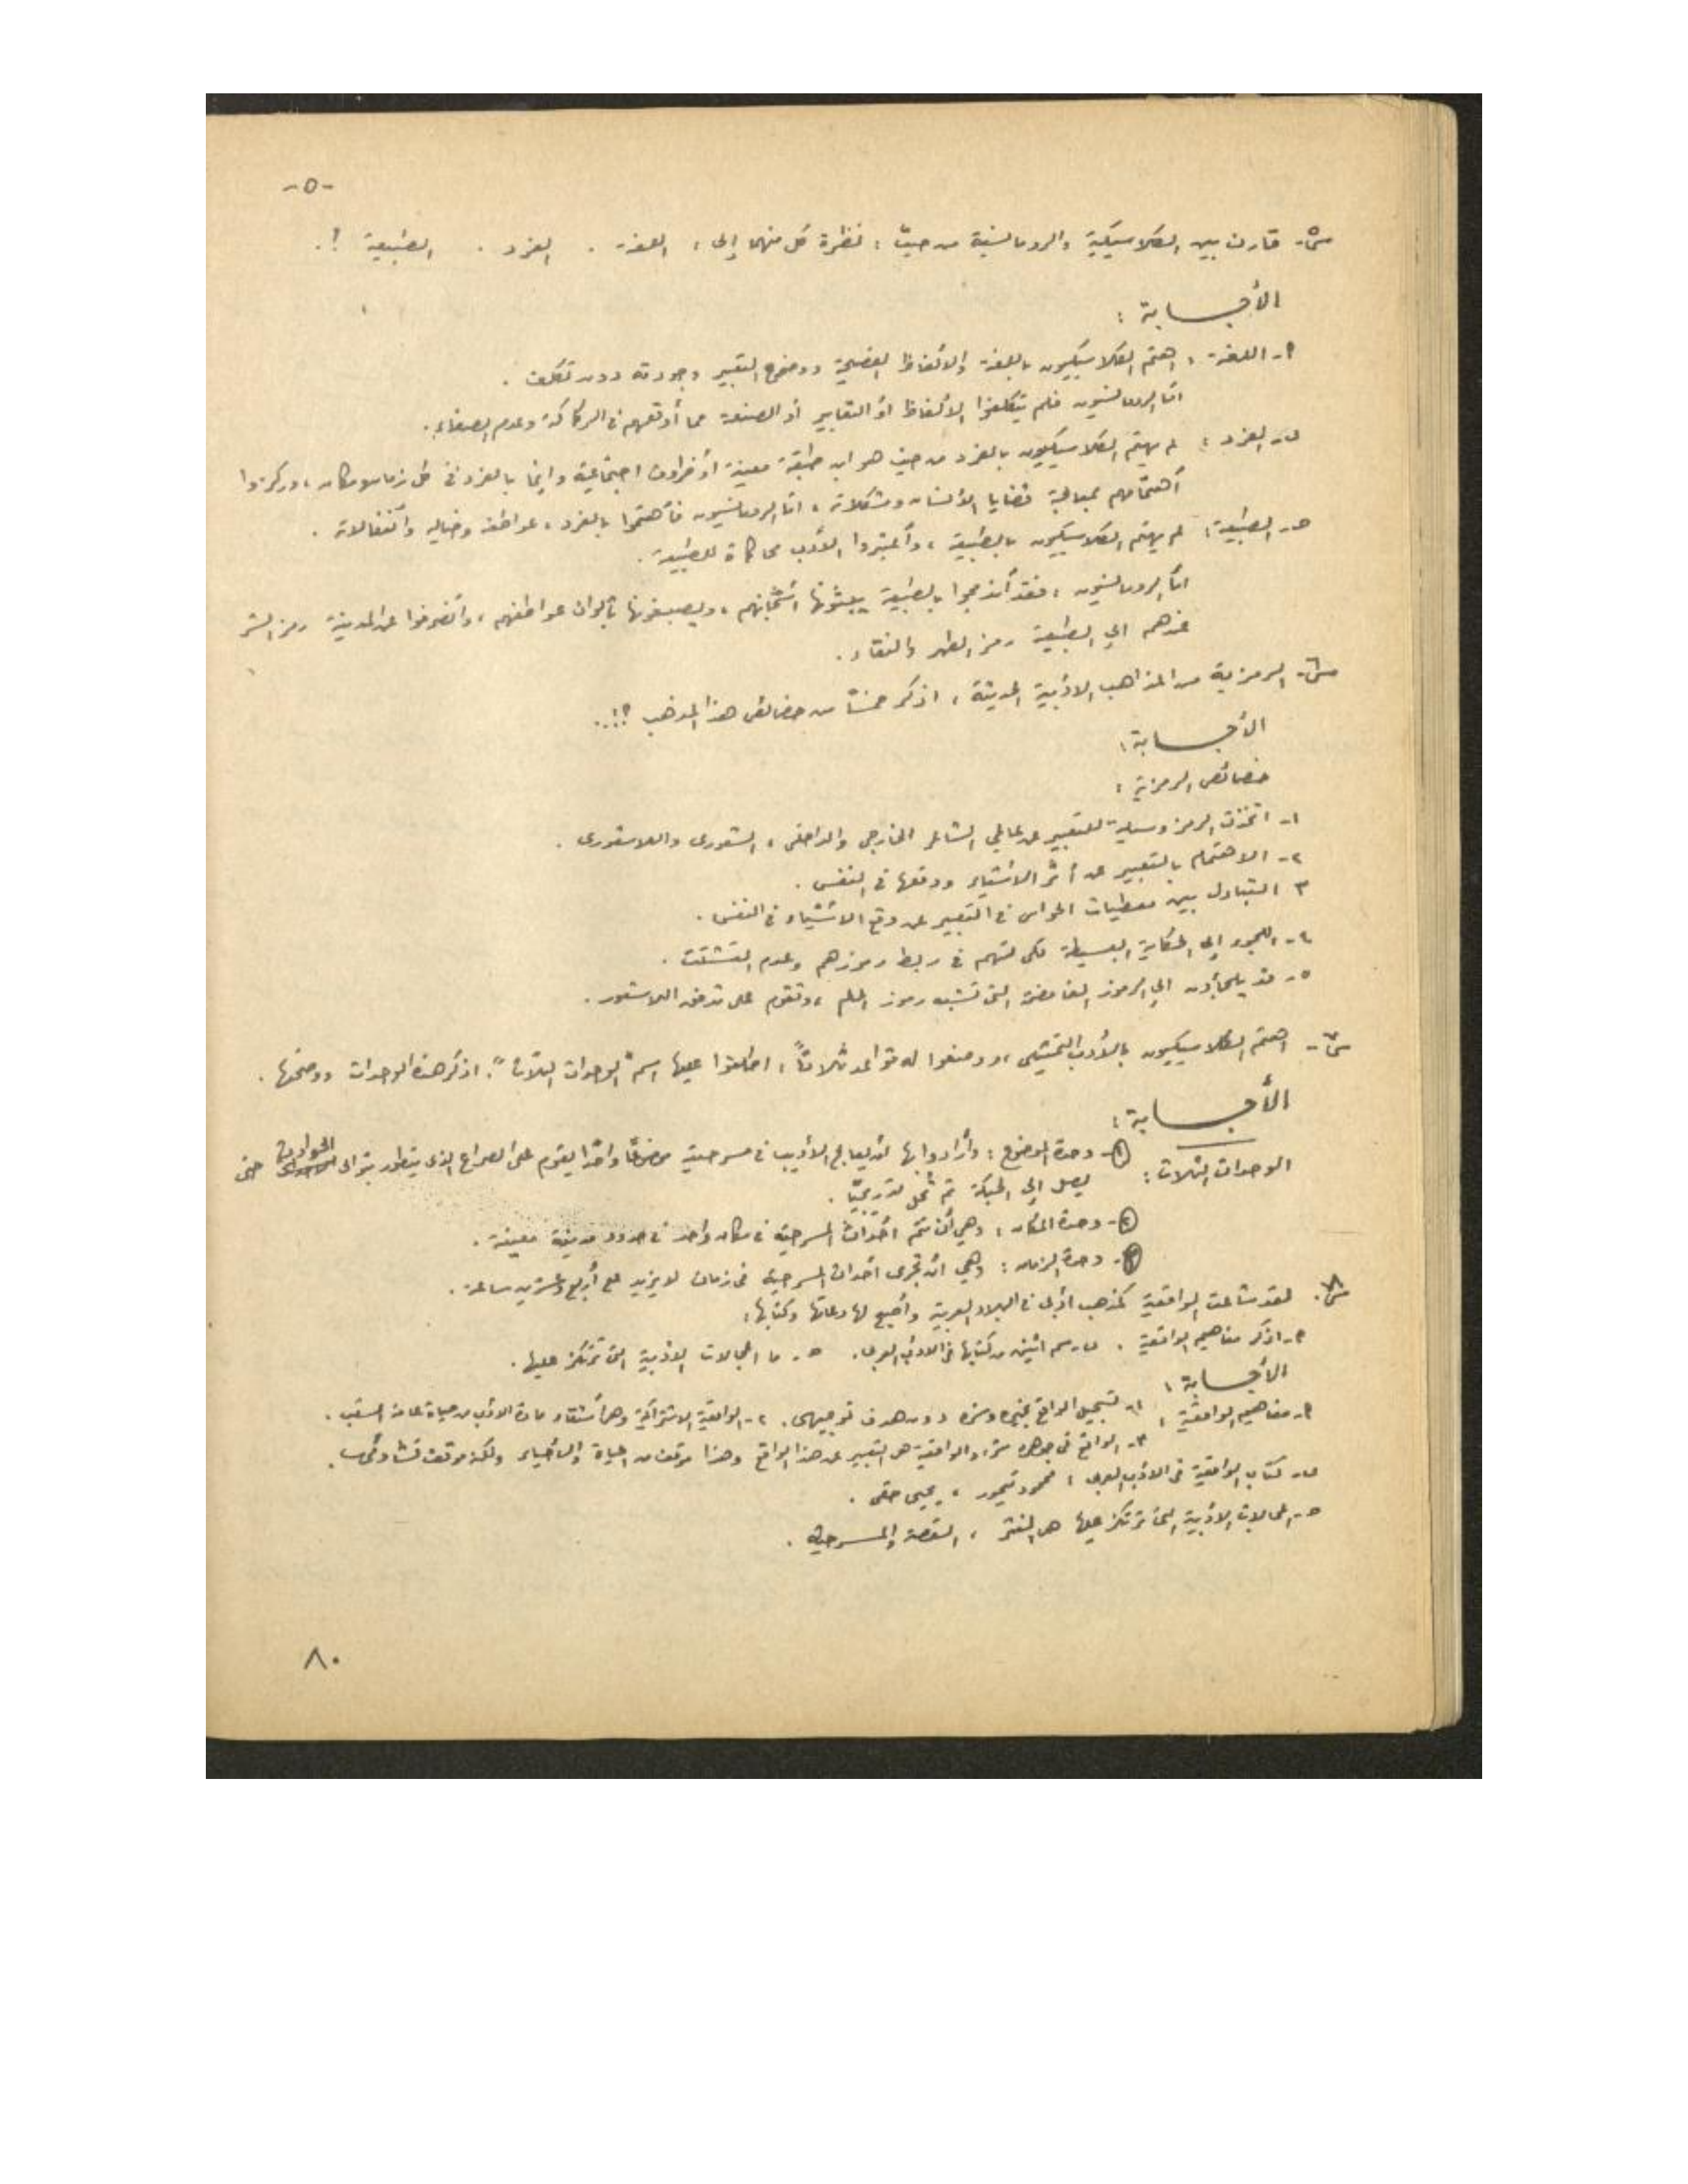 -٥-
س٥- قارن بين الكلاسيكية والرومانسية من حيث : نظرة كل منهما إلى : اللغة . الفرد . الطبيعة !.
الأجــابة :
٩- اللغة : اهتم الكلاسيكيون باللغة والألفاظ الفصيحة ووضوح التعبير وجودته دون تكلف .
أمّا الرومانسيون فلم يتكلفوا الألفاظ أو التعابير أو الصنعة مما أوقعهم في الركاكة وعدم الصفاء.
ب- الفرد : لم يهتم الكلاسيكيون بالفرد من حيث هو ابن طبقة معينة أو ظروف اجتماعية وإنما بالفرد في كل زمان ومكان ، وركزوا
أهتمامهم بمعالجة قضايا الأنسان ومشكلاته ، امّا الرومانسيون فأهتموا بالفرد ، عواطفه وخياله وأنفعالاته .
ح- الطبيعة: لم يهتم الكلاسيكيون بالطبيعة ، وأعتبروا الأدب محاكاة للطبيعة .
امّا الرومانسيون ، فقد أندمجوا بالطبيعة يبثونها أشجانهم ، ويصبغونها بألوان عواطفهم ، وأنصرفوا عن المدينة رمز الشر
عندهم الى الطبيعة رمز الطهر والنقاء .
س٦- الرمزية من المذاهب الادبية الحديثة ، اذكر خمساً من خصائص هذا المذهب ؟!...
الأجــابة :
خصائص الرمزية :
١- اتخذت الرمز وسيلة للتعبير عن عالمي الشاعر الخارجي والداخلي ، الشعوري واللاشعوري .
٢- الاهتمام بالتعبير عن أثر الاشياء ووقعها في النفس .
٣ التبادل بين معطيات الحواس في التعبير عن وقع الاشياء في النفس .
٤- اللجوء الى الحكاية البسيطة لكي تسهم في ربط رموزهم وعدم التشتت .
٥- قد يلجأون الى الرموز الغامضة التي تشبه رموز الحلم ، وتقوم على تدفق اللاشعور .
س٧- اهتم الكلاسيكيون بالأدب التمثيلي ، ووضعوا له قواعد ثلاثاً ، اطلقوا عليها اسم "الوحدات الثلاث". اذكر هذه الوحدات ووضحها .
الأجــابة :
الوحدات الثلاث : ①- وحدة الموضوع : وأرادوا بها أن يعالج الأديب في مسرحيته موضوعًا واحدًا يقوم على الصراع الذي يتطور بتوالي الحوادث حتى
يصل الى الحبكة ثم تُحل تدريجيًا .
②- وحدة المكان : وهي أن تتم أحداث المسرحية في مكان واحد في حدود مدينة معينة .
③- وحدة الزمان : وهي أن تجرى أحداث المسرحية في زمان لا يزيد على أربع وعشرين ساعة .
س٨. لقد شاعت الواقعية كمذهب أدبي في البلاد العربية وأصبح لها دعاتها وكتّابها :
٩- اذكر مفاهيم الواقعية . ب- سم اثنين من كتابها في الأدب العربي . ح- ما المجالات الأدبية التي ترتكز عليها .
الأجــابة :
٩- مفاهيم الواقعية : ١- تسجيل الواقع بخيره وشره دون هدف توجيهي . ٢- الواقعية الاشتراكية وهي أستقاء مادة الأدب من حياة عامة الشعب .
٣- الواقع في جوهره شر ، والواقعية هي التعبير عن هذا الواقع وهذا موقف من الحياة والأحياء ولكنه موقف تشاؤمي .
ب- كتاب الواقعية في الأدب العربي : محمود تيمور ، يحيى حقي .
ح- المجالات الأدبية التي ترتكز عليها هي النثر ، القصة والمسرحية .
٨٠